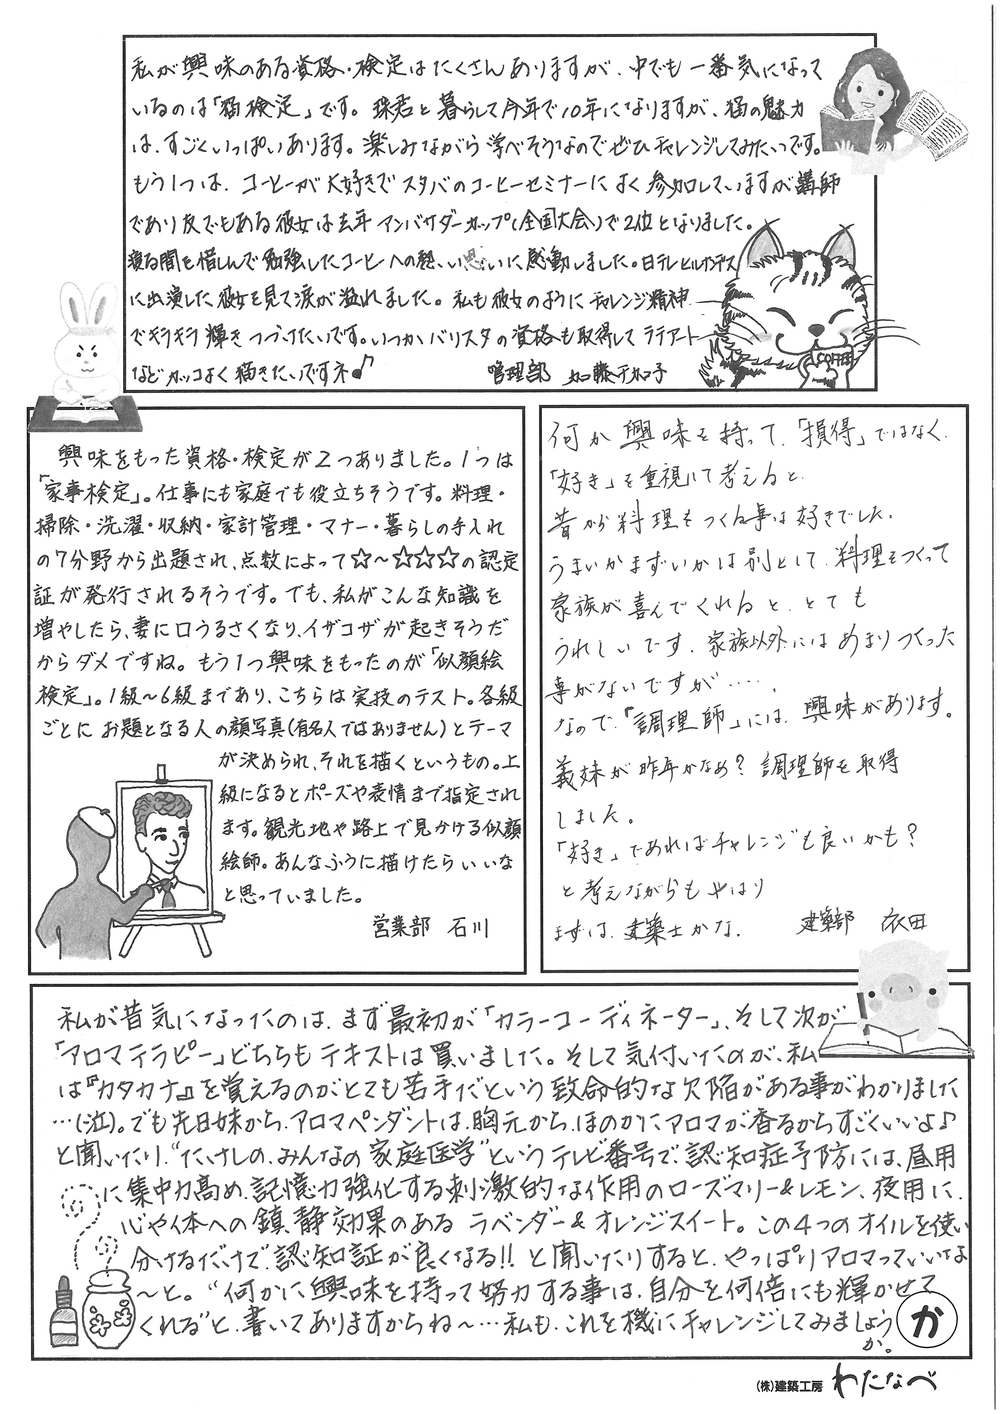 私が興味のある資格・検定はたくさんありますが、中でも一番気になって
いるのは「猫検定」です。珠君と暮らして今年で10年になりますが、猫の魅力
は、すごくいっぱいあります。楽しみながら学べそうなのでぜひチャレンジしてみたいです。
もう1つは、コーヒーが大好きでスタバのコーヒーセミナーによく参加していますが講師
であり友でもある彼女は去年アンバサダーカップ(全国大会)で2位となりました。
寝る間を惜しんで勉強したコーヒーへの熱い思いに感動しました。日テレヒルナンデス
に出演した彼女を見て涙が溢れました。私も彼女のようにチャレンジ精神
でキラキラ輝きつづけたいです。いつかバリスタの資格も取得してラテアート
などカッコよく描きたいですネ♪ 管理部 加藤千加子
COFFEE
興味をもった資格・検定が2つありました。1つは
「家事検定」。仕事にも家庭でも役立ちそうです。料理・
掃除・洗濯・収納・家計管理・マナー・暮らしの手入れ
の7分野から出題され、点数によって☆～☆☆☆の認定
証が発行されるそうです。でも、私がこんな知識を
増やしたら、妻に口うるさくなり、イザコザが起きそうだ
からダメですね。もう1つ興味をもったのが「似顔絵
検定」。1級～6級まであり、こちらは実技のテスト。各級
ごとにお題となる人の顔写真(有名人ではありません)とテーマ
が決められ、それを描くというもの。上
級になるとポーズや表情まで指定され
ます。観光地や路上で見かける似顔
絵師。あんなふうに描けたらいいな
と思っていました。
営業部 石川
何か興味を持って、「損得」ではなく、
「好き」を重視して考えると、
昔から料理をつくる事は好きでした。
うまいかまずいかは別として、料理をつくって
家族が喜んでくれると、とても
うれしいです。家族以外にはあまりつくった
事がないですが……、
なので、「調理師」には、興味があります。
義妹が昨年かなぁ？調理師を取得
しました。
「好き」であればチャレンジも良いかも？
と考えながらもやはり
まずは、建築士かな。 建築部 依田
私が昔気になったのは、まず最初が「カラーコーディネーター」、そして次が
「アロマテラピー」どちらもテキストは買いました。そして気付いたのが、私
は『カタカナ』を覚えるのがとても苦手だという致命的な欠陥がある事がわかりました
…(泣)。でも先日妹から、アロマペンダントは、胸元から、ほのかにアロマが香るからすごくいいよ♪
と聞いたり、“たけしの、みんなの家庭医学”というテレビ番号で、認知症予防には、昼用
に集中力高め、記憶力強化する刺激的な作用のローズマリー&レモン、夜用に、
心や体への鎮静効果のあるラベンダー&オレンジスイート。この4つのオイルを使い
分けるだけで、認知証が良くなる!!と聞いたりすると、やっぱりアロマっていいなぁ
～と。“何かに興味を持って努力する事は、自分を何倍にも輝かせて
くれる”と、書いてありますからね～…私も、これを機にチャレンジしてみましょう
か。
か
(株)建築工房 わたなべ